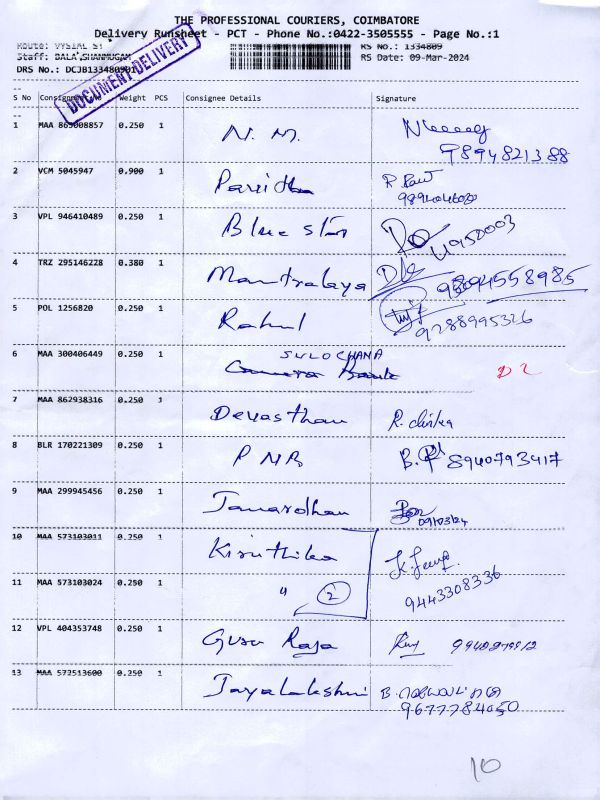 THE PROFESSIONAL COURIERS, COIMBATORE
Delivery Runsheet - PCT - Phone No.:0422-3505555 - Page No.:1
Route: VYSIAL ST RS No.: 1334809
Staff: BALA SHANMUGAM RS Date: 09-Mar-2024
DRS No.: DCJB133480901
DOCUMENT DELIVERY
S No Consignment No Weight PCS Consignee Details Signature
1 MAA 869008857 0.250 1 N. M.
9894821388
2 VCM 5045947 0.900 1 Pavitha
9894046020
3 VPL 946410489 0.250 1 Blue star
4 TRZ 295146228 0.380 1 Mantralaya
5 POL 1256820 0.250 1 Rahul
9288995326
SULOCHANA
6 MAA 300406449 0.250 1 D2
7 MAA 862938316 0.250 1 Devasthan
8 BLR 170221309 0.250 1 PNB 8940793417
9 MAA 299945456 0.250 1 Janardhan
09/03/24
10 MAA 573103011 0.250 1 Kiruthika
11 MAA 573103024 0.250 1 " 2 9443308336
12 VPL 404353748 0.250 1 Guru Raja
13 MAA 572513600 0.250 1 Jayalakshmi
9677784050
10